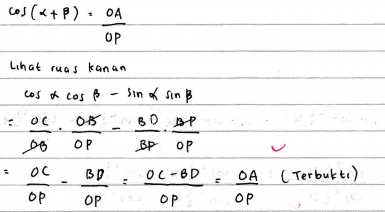 cos(α+β) = OA/OP
Lihat ruas kanan
cos α cos β - sin α sin β
= OC/OB . OB/OP - BD/BP . BP/OP
= OC/OP - BD/OP = OC-BD/OP = OA/OP (Terbukti)